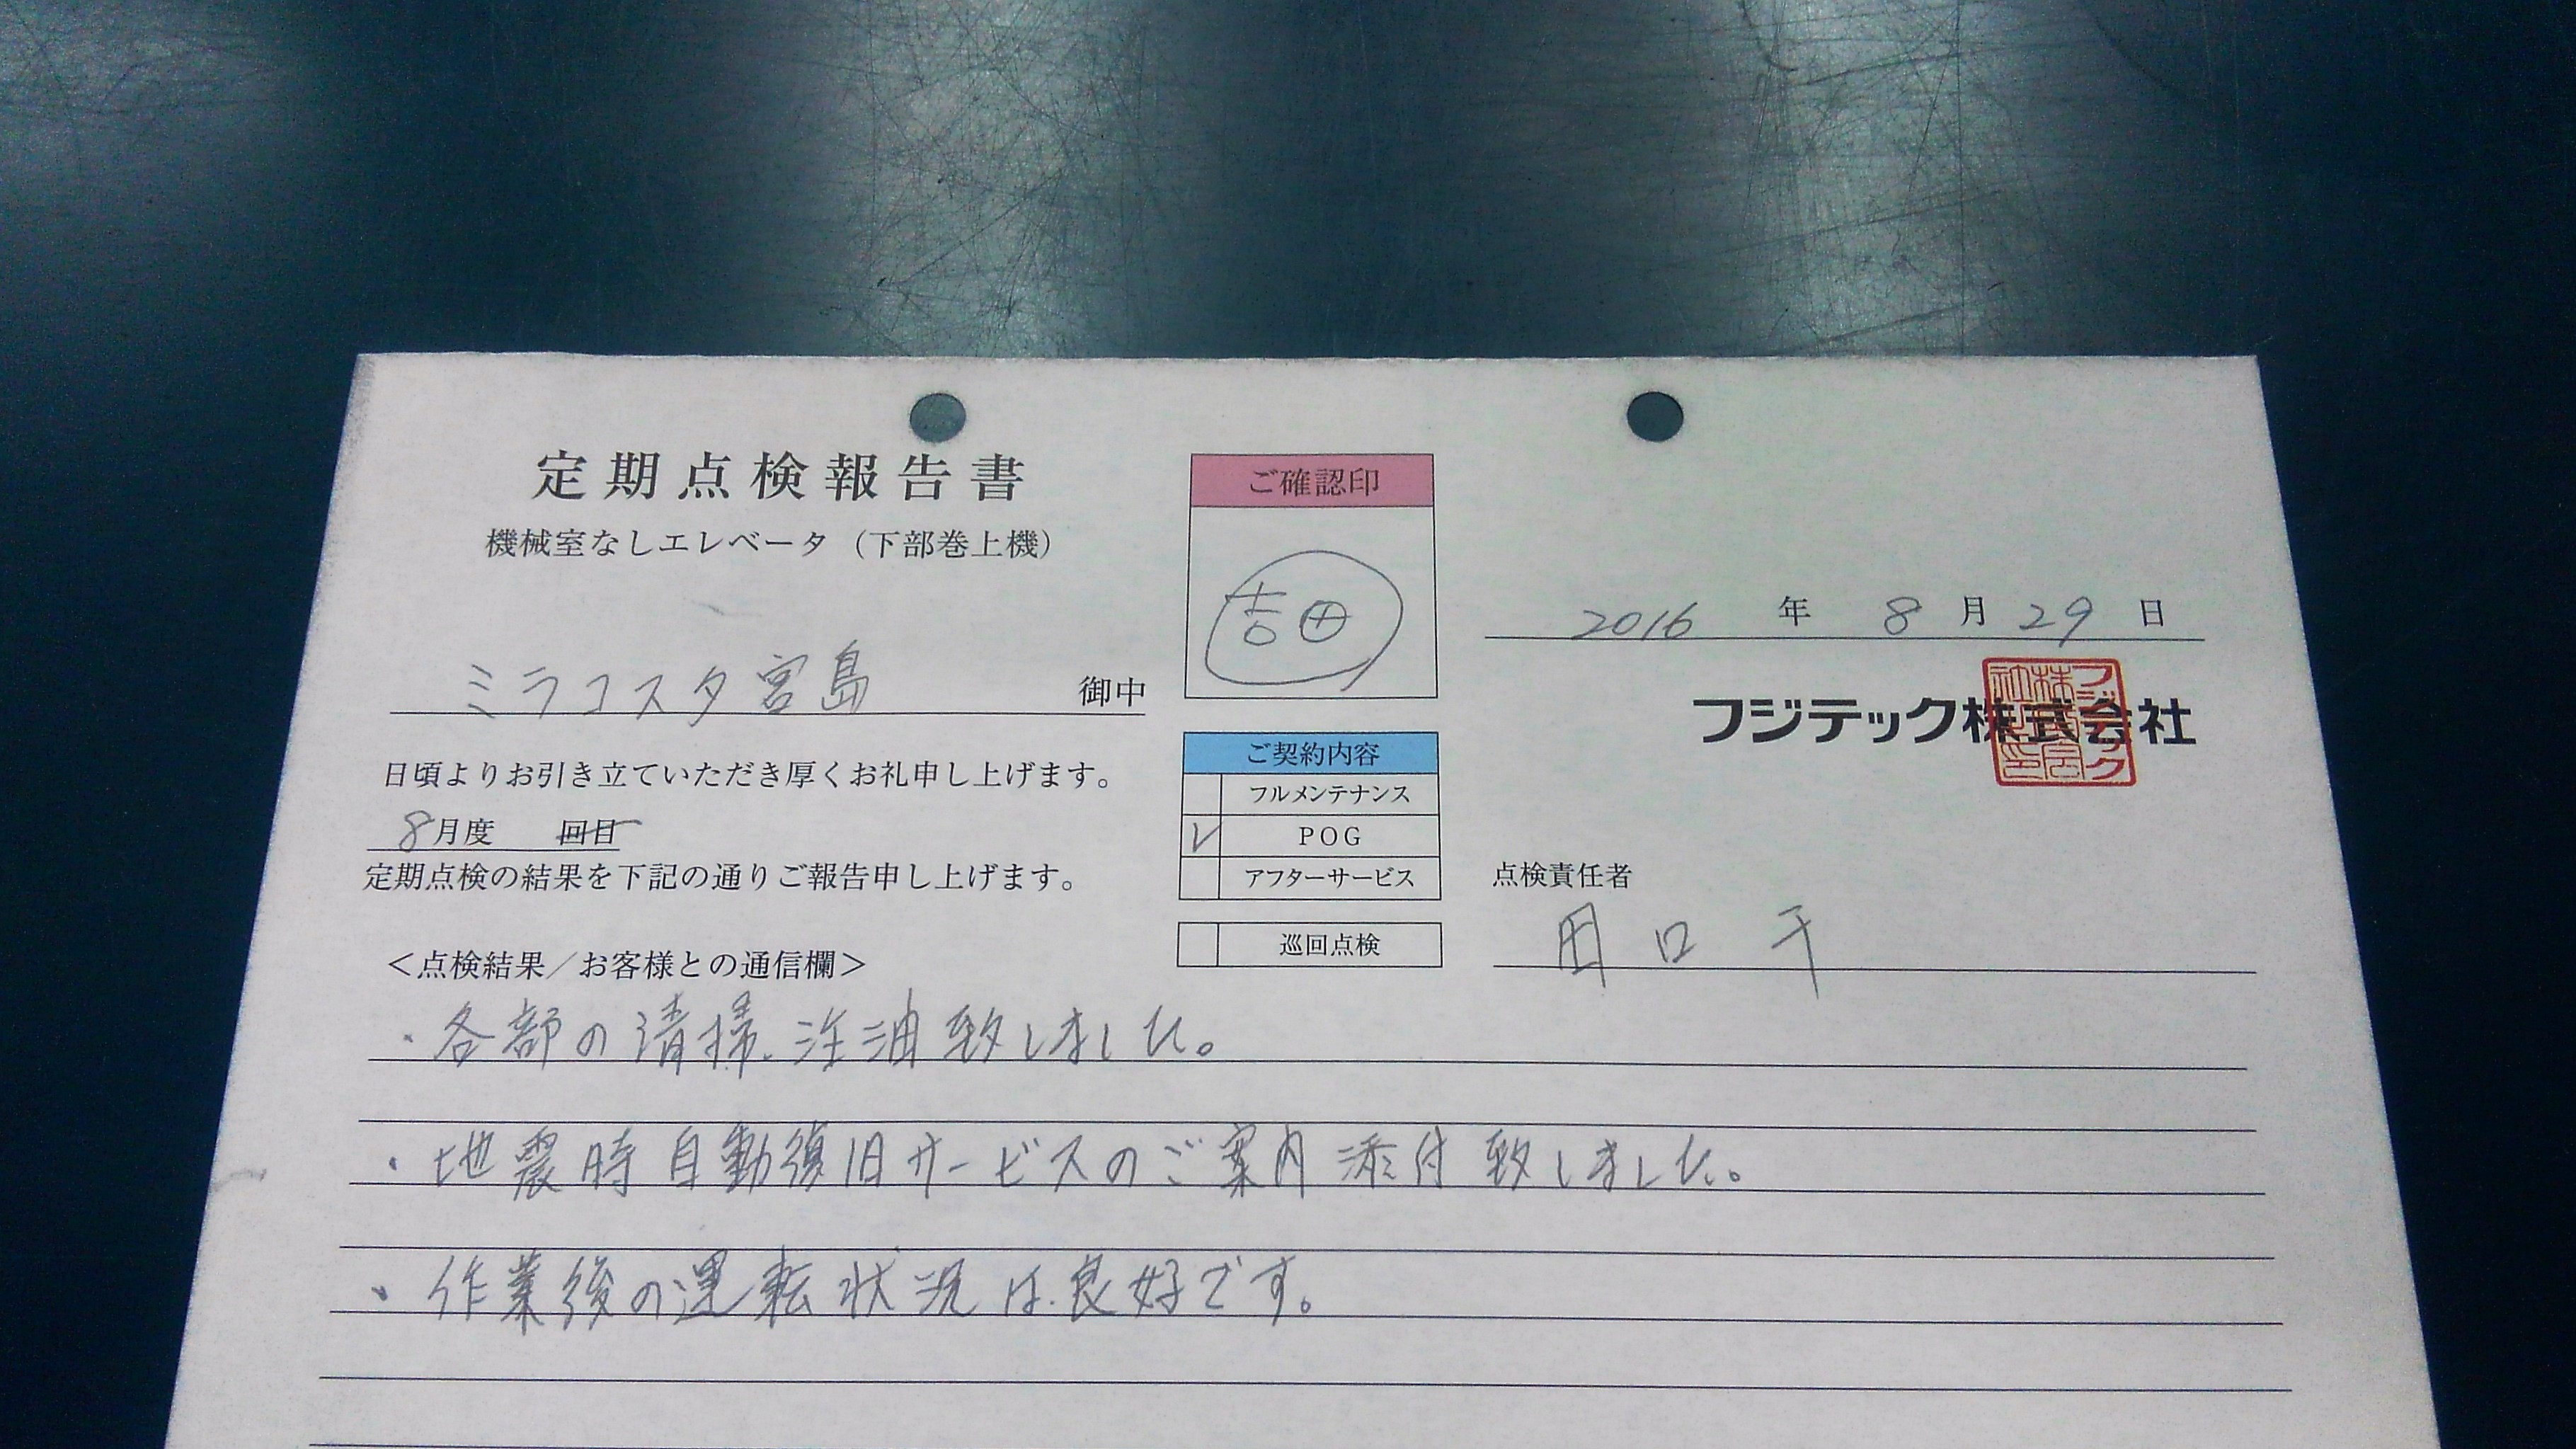 定期点検報告書
機械室なしエレベータ（下部巻上機）
ミラコスタ宮島 御中
日頃よりお引き立ていただき厚くお礼申し上げます。
8月度 回目
定期点検の結果を下記の通りご報告申し上げます。
ご確認印
吉田
ご契約内容
フルメンテナンス
✓ POG
アフターサービス
巡回点検
2016 年 8 月 29 日
フジテック株式会社
点検責任者
田口 干
＜点検結果／お客様との通信欄＞
・各部の清掃、注油致しました。
・地震時自動復旧サービスのご案内添付致しました。
・作業後の運転状況は良好です。